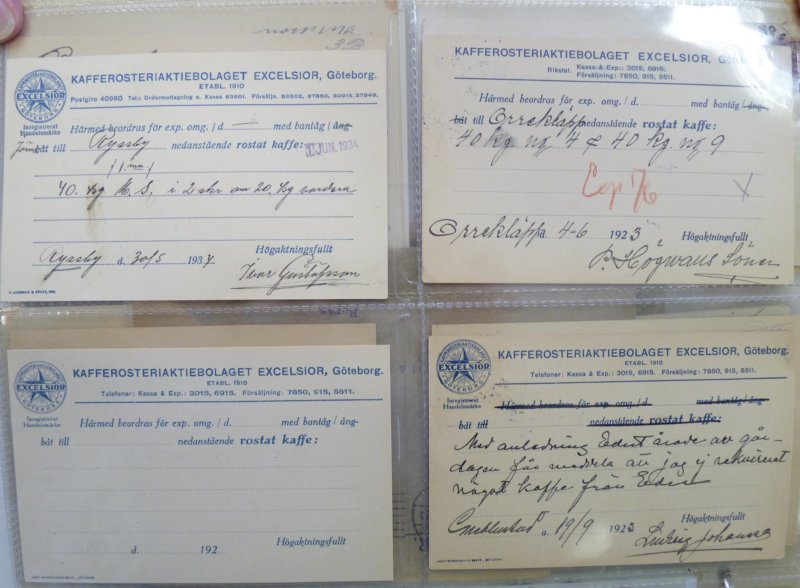 KAFFEROSTERIAKTIEBOLAGET EXCELSIOR, Göteborg.
ETABL. 1910
Postgiro 40980 Tel.: Ordermottagning o. Kassa 82601. Försäljn. 82602, 37850, 30915, 37649.
KAFFEROSTERIAKTIEBOLAGET
EXCELSIOR
GÖTEBORG
Inregistrerat
Handelsmärke
Härmed beordras för exp. omg. / d. med bantåg / ång-
båt till Ryssby nedanstående rostat kaffe:
JUN. 1934
40. kg M. S. i 2 skr om 20. kg vardera
Ryssby d. 30/5 1934 Högaktningsfullt
Ivar Gustafsson
KAFFEROSTERIAKTIEBOLAGET EXCELSIOR, Göteborg.
ETABL. 1910
Rikstel. Kassa & Exp.: 3015, 6915.
Försäljning: 7850, 915, 5511.
Härmed beordras för exp. omg. / d. med bantåg / ång-
båt till Orrekläpp nedanstående rostat kaffe:
40 kg no 4 & 40 kg no 9
Exp 7/6
Orrekläpp d. 4-6 1923 Högaktningsfullt
P. Högvans Söner
KAFFEROSTERIAKTIEBOLAGET
EXCELSIOR
GÖTEBORG
Inregistrerat
Handelsmärke
KAFFEROSTERIAKTIEBOLAGET EXCELSIOR, Göteborg.
ETABL. 1910
Telefoner: Kassa & Exp.: 3015, 6915. Försäljning: 7850, 915, 5511.
Härmed beordras för exp. omg. / d. med bantåg / ång-
båt till nedanstående rostat kaffe:
d. 192 Högaktningsfullt
KAFFEROSTERIAKTIEBOLAGET
EXCELSIOR
GÖTEBORG
Inregistrerat
Handelsmärke
KAFFEROSTERIAKTIEBOLAGET EXCELSIOR, Göteborg.
ETABL. 1910
Telefoner: Kassa & Exp.: 3015, 6915. Försäljning: 7850, 915, 5511.
Härmed beordras för exp. omg. / d. med bantåg / ång-
båt till nedanstående rostat kaffe:
Med anledning Edert ärade av går-
dagen får meddela att jag ej rekvirerat
något kaffe från Eder
d. 19/9 1923 Högaktningsfullt
Ludvig Johanns